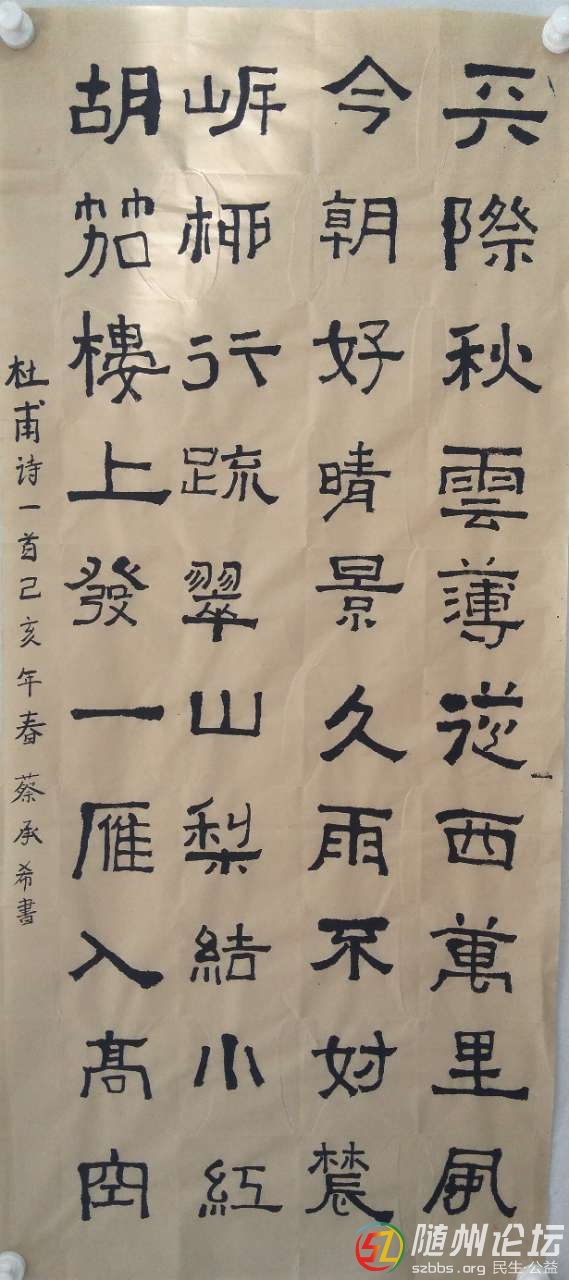 天際秋雲薄從西萬里風
今朝好晴景久雨不妨農
岸柳行疏翠山梨結小紅
胡笳樓上發一雁入髙空
杜甫诗一首己亥年春 蔡承希書
随州论坛
szbbs.org 民生·公益